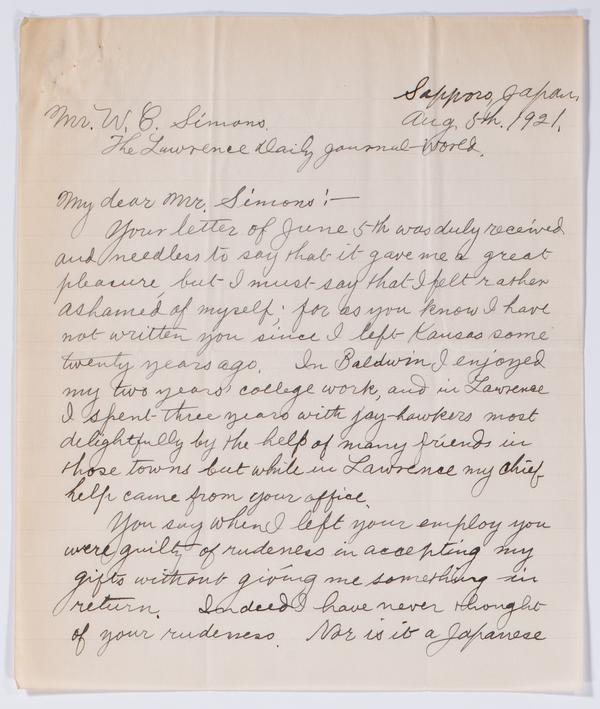 Sapporo, Japan,
Aug. 5th. 1921.
Mr. W. C. Simons.
The Lawrence Daily Journal-World.
My dear Mr. Simons:-
Your letter of June 5th was duly received
and needless to say that it gave me a great
pleasure, but I must say that I felt rather
ashamed of myself; for as you know I have
not written you since I left Kansas some
twenty years ago. In Baldwin I enjoyed
my two years' college work, and in Lawrence
I spent three years with jay-hawkers most
delightfully by the help of many friends in
those towns but while in Lawrence my chief
help came from your office.
You say when I left your employ you
were guilty of rudeness in accepting my
gifts without giving me something in
return. Indeed I have never thought
of your rudeness. Nor is it a Japanese